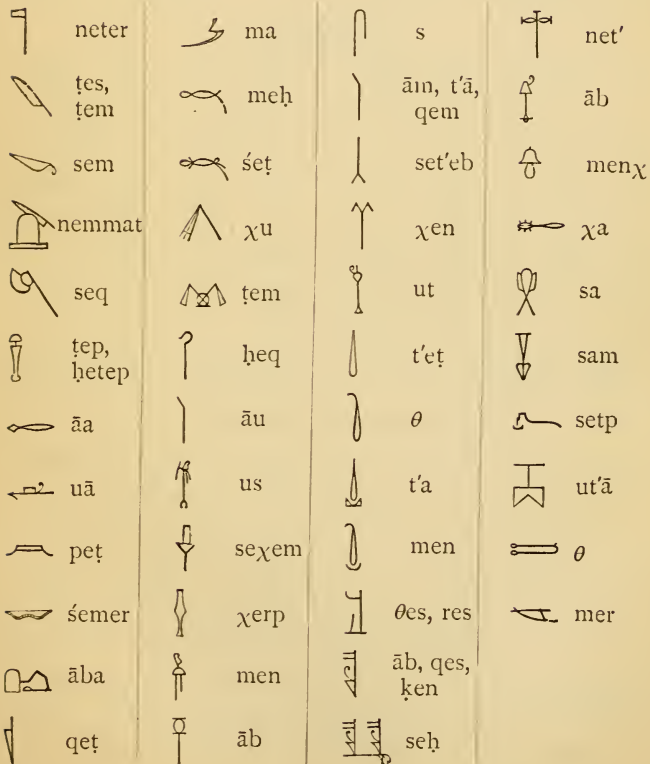 neter
ṭes,
ṭem
sem
nemmat
seq
ṭep,
ḥetep
āa
uā
peṭ
śemer
āba
qeṭ
ma
meḥ
śeṭ
χu
ṭem
ḥeq
āu
us
seχem
χerp
men
āb
s
ām, t'ā,
qem
set'eb
χen
ut
t'eṭ
θ
t'a
men
θes, res
āb, qes,
ḳen
seḥ
net'
āb
menχ
χa
sa
sam
setp
ut'ā
θ
mer